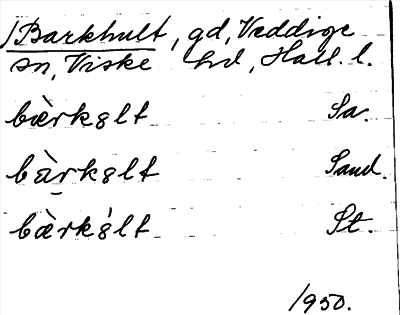 /Barkhult, gd, Veddige
sn, Viske hd, Hall. l.
bæ̀rkəlt Sa.
bàrkəlt Sand.
bæ̀rkəlt St.
1950.